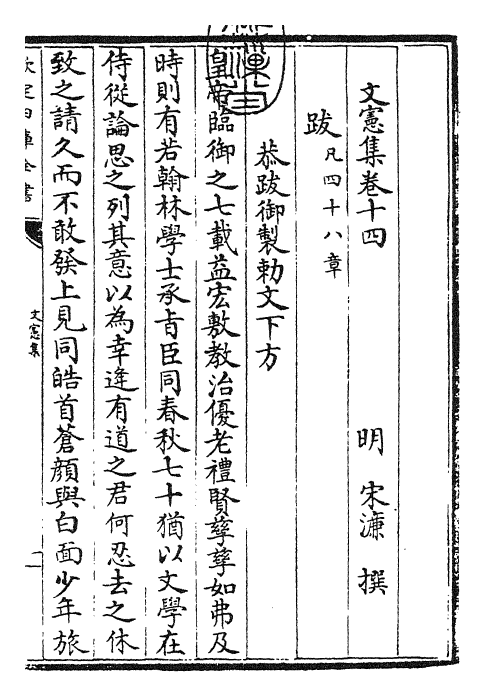 文憲集卷十四
明 宋濂 撰
跋凡四十八章
恭跋御製勅文下方
皇帝臨御之七載益宏敷教治優老禮賢孳孳如弗及
時則有若翰林學士承旨臣同春秋七十猶以文學在
侍從論思之列其意以為幸逢有道之君何忍去之休
致之請久而不敢發上見同皓首蒼顔與白面少年旅
欽定四庫全書
文憲集